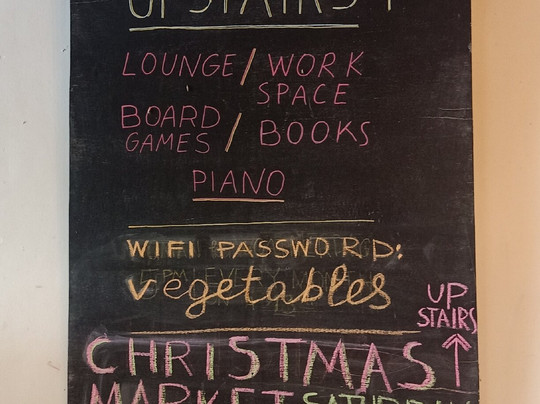 UPSTAIRS ↑
LOUNGE / WORK SPACE
BOARD GAMES / BOOKS
PIANO
WIFI PASSWORD:
vegetables
UP STAIRS ↑
CHRISTMAS
MARKET SATURDAY